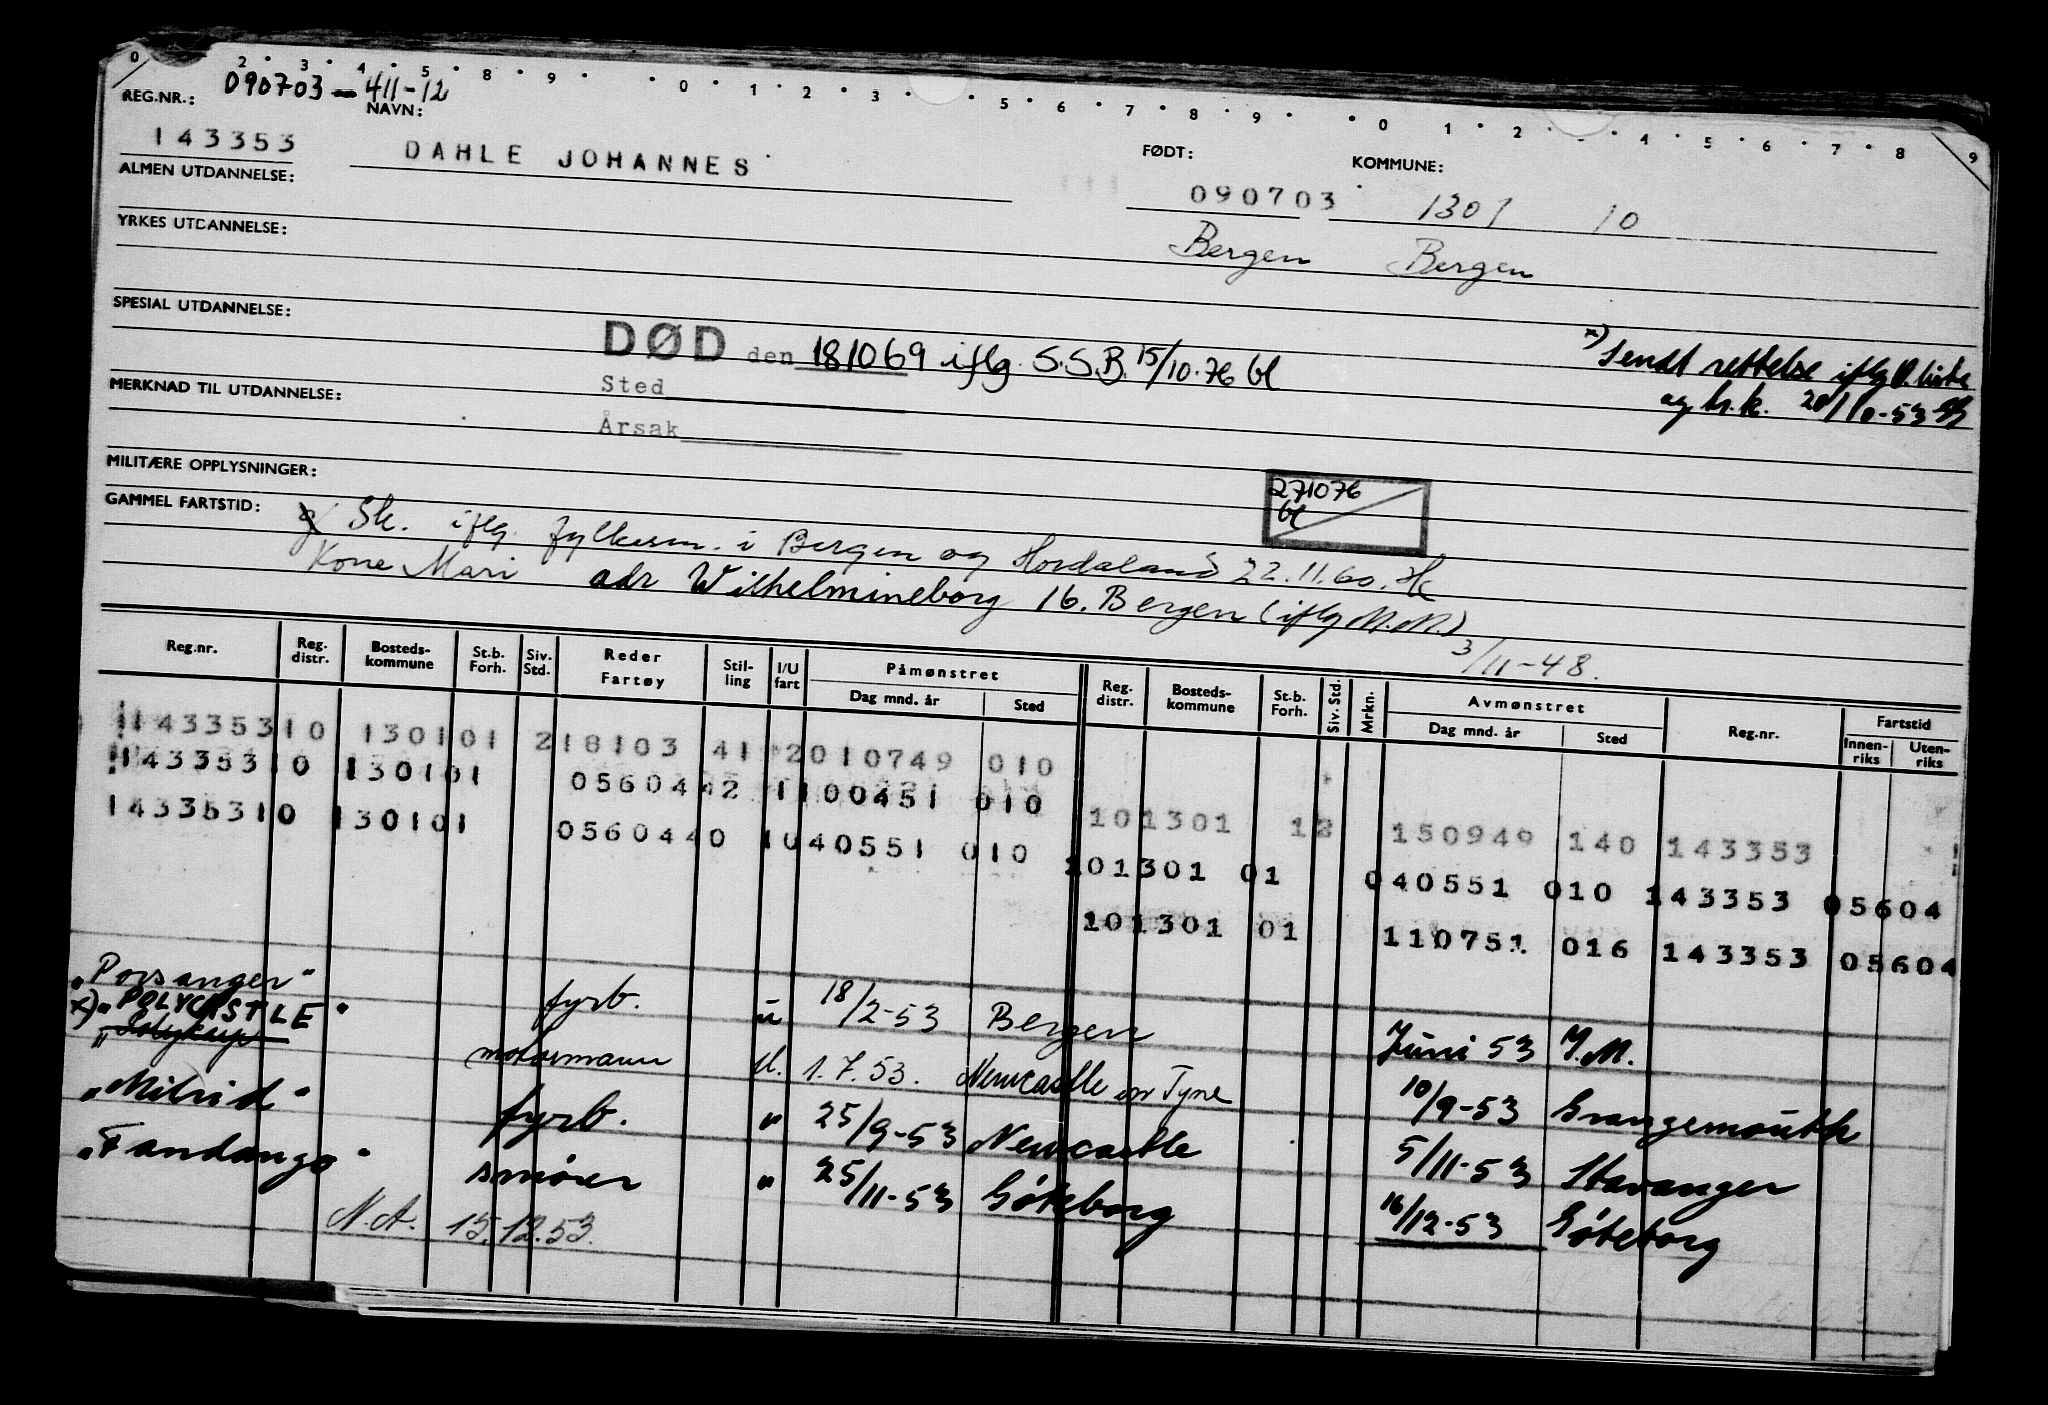 0 2 • 3 • 4 • 5 • 8 • 9 • 0 • 1 • 2 • 3 • • 5 • 6 • 7 • 8 • 9 • • 0 1 • 2 • 4 • 5 • 6 • 7 • 8 9
REG.NR.: 090703-411-12
NAVN:
143353 DAHLE JOHANNES
FØDT: KOMMUNE:
090703 1301 10
ALMEN UTDANNELSE:
YRKES UTDANNELSE:
Bergen Bergen
SPESIAL UTDANNELSE:
DØD den 181069 iflg. S.S.B. 15/10.76 bl
x) Sendt rettelse iflg O. liste
og h.k. 20/10-53
Sted
MERKNAD TIL UTDANNELSE:
Årsak
MILITÆRE OPPLYSNINGER:
271076
bl
GAMMEL FARTSTID: Sk. iflg. fylkesm. i Bergen og Hordaland 22.11.60.
Kone Mari adr Wilhelmineborg 16. Bergen (iflg M.M.)
3/11-48.
Reg.nr. Reg. distr. Bosteds-kommune St.b. Forh. Siv. Std. Reder Fartøy Stil-ling I/U fart Påmønstret Dag mnd. år Sted Reg. distr. Bosteds-kommune St.b. Forh. Siv. Std. Mrkn. Avmønstret Dag mnd. år Sted Reg.nr. Fartstid Innen-riks Uten-riks
143353 10 1301 01 2 18103 41 2 010749 010 10 1301 12 150949 140 143353
143353 10 1301 01 05604 42 1 100451 010 10 1301 01 040551 010 143353 05604
143353 10 1301 01 05604 40 1 040551 010 10 1301 01 110751 016 143353 05604
„Porsanger" fyrb. u 18/2-53 Bergen Juni 53 I.M.
x) „POLYCASTLE" motormann u. 1.7.53. Newcastle on Tyne 10/9-53 Grangemouth
„Milrid" fyrb. " 25/9-53 Newcastle 5/11-53 Stavanger
„Fandango" smører " 25/11-53 Göteborg 16/12-53 Göteborg
N.A. 15.12.53.